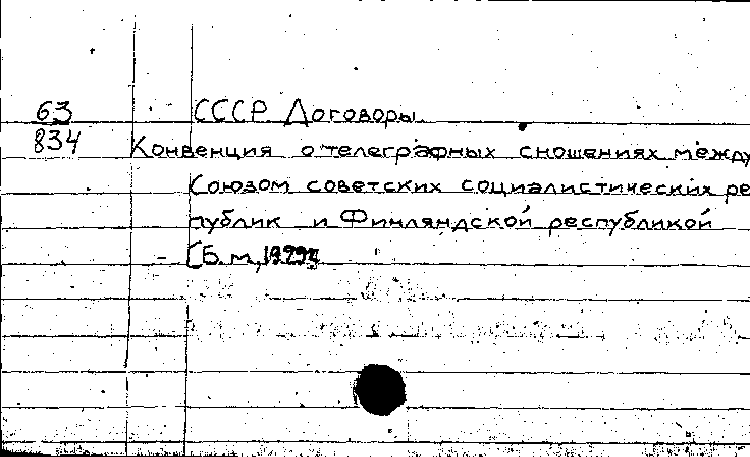 63
834
СССР. Договоры.
Конвенция о телеграфных сношениях между
Союзом советских социалистических ре
публик и Финляндской республикой
[Б. м.,